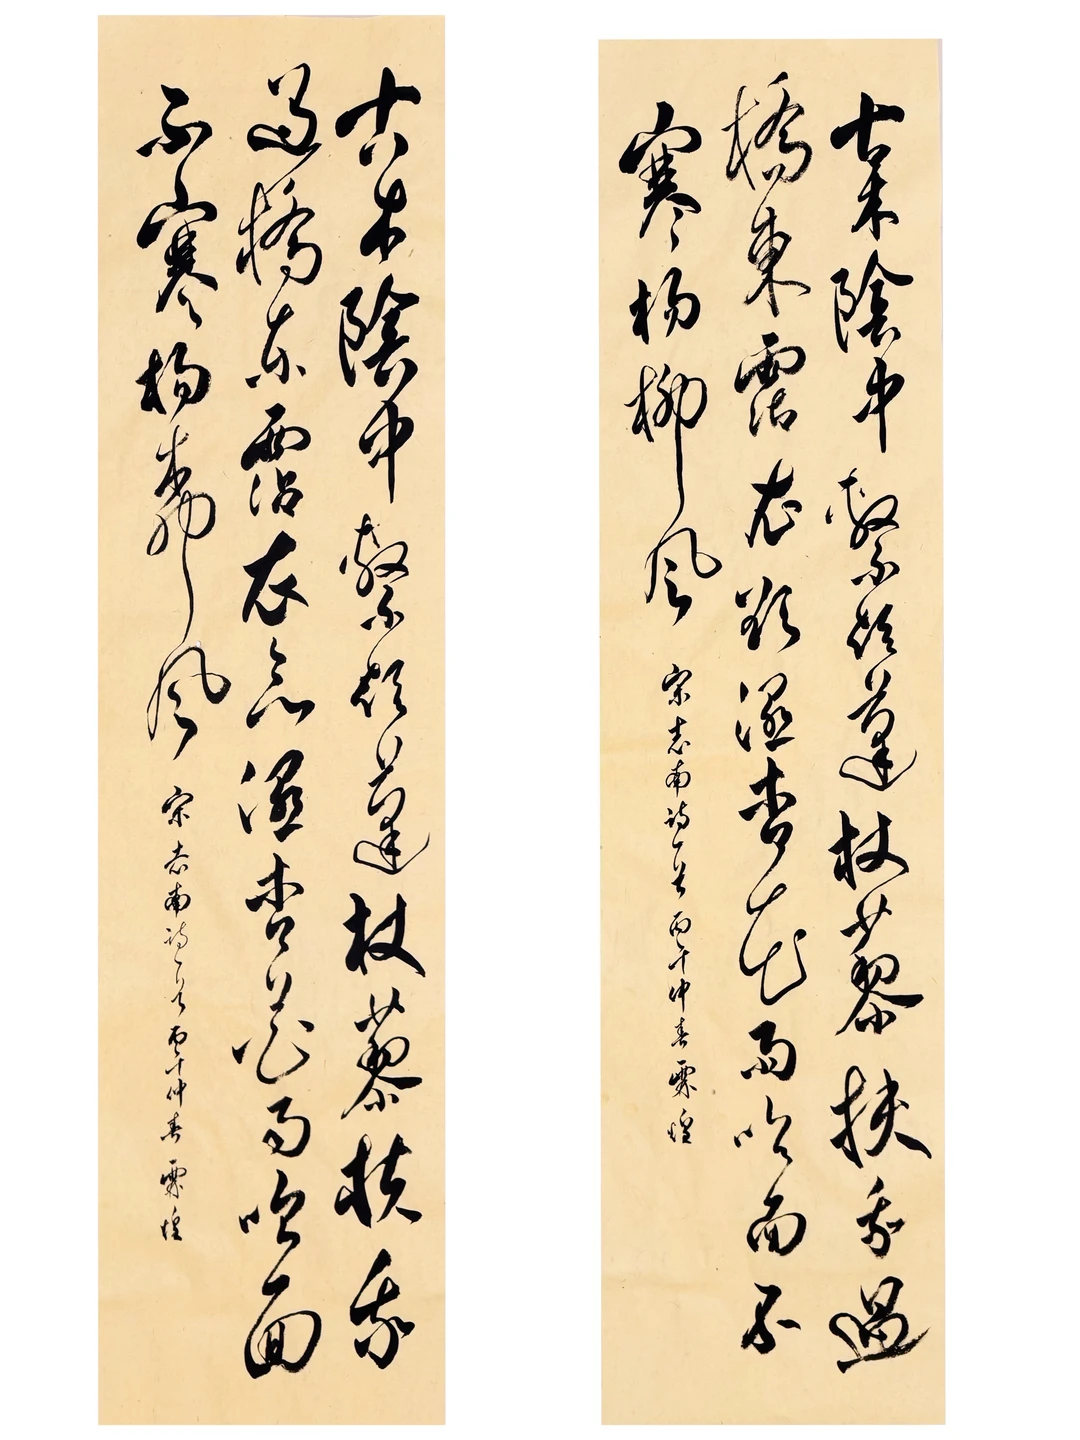 古木陰中繫短蓬杖藜扶我過
橋東霑衣欲濕杏花雨吹面不
寒楊柳風
宋志南詩一首 丙午仲春 霖煌
古木陰中繫短蓬杖藜扶我
過橋東霑衣欲濕杏花雨吹面
不寒楊柳風
宋志南詩一首 丙午仲春 霖煌